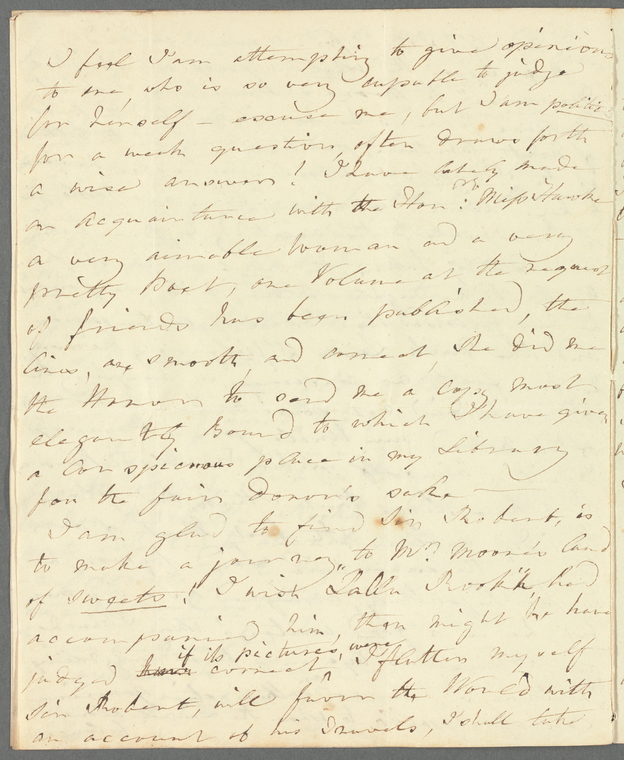 I feel I am attempting to give opinions
to one, who is so very capable to judge
for himself – excuse me, but I am politic
for a weak question often draws forth
a wise answer! I have lately made
an acquaintance with the Hon: Miss Hawke
a very aimable Woman and a very
pretty Poet, one Volume at the request
of friends has been published, the
lines, are smooth, and correct, she did me
the Honor to send me a copy most
elegantly Bound to which I have given
a conspicuous place in my Library
for the fair Donor's sake —
I am glad to find Sir Robert, is
to make a journey, to Mr. Moore's land
of sweets! I wish Lalla Rookh had
accompanied him, then might he have
if its pictures, were
judged correct, I flatter myself
Sir Robert, will favor the World with
an account of his Travels, I shall take